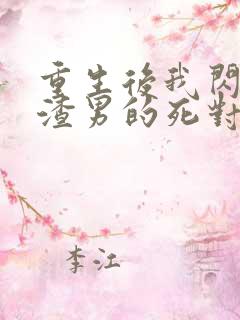 重生後我閃
渣男的死對
李江